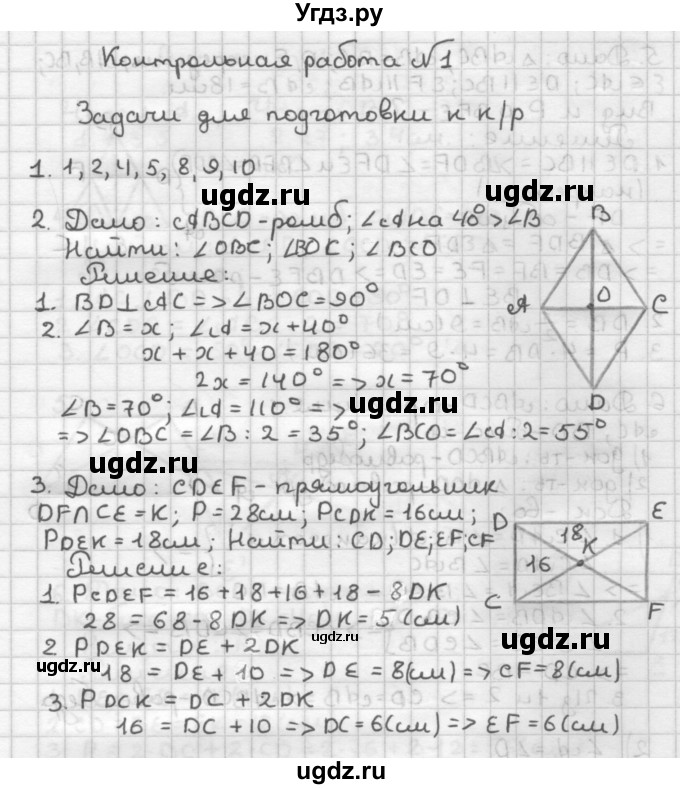 Угдз.ру
Контрольная работа №1
Задачи для подготовки к к/р
1. 1, 2, 4, 5, 8, 9, 10
ugdz.ru ugdz.ru
2. Дано: ABCD - ромб; ∠A на 40° > ∠B
Найти: ∠OBC; ∠BOC; ∠BCO
Решение:
1. BD⊥AC => ∠BOC = 90°
2. ∠B = x; ∠A = x + 40°
x + x + 40 = 180°
2x = 140° => x = 70°
∠B = 70°; ∠A = 110° =>
ugdz.ru
=> ∠OBC = ∠B : 2 = 35°; ∠BCO = ∠A : 2 = 55°
B
A O C
D
ugdz.ru
3. Дано: CDEF - прямоугольник
DF∩CE = K; P = 28см; PCDK = 16см;
PDEK = 18см; Найти: CD; DE; EF; CF
Решение:
D E
18 K
16
C F
1. PCDEF = 16 + 18 + 16 + 18 - 8DK
28 = 68 - 8DK => DK = 5(см)
ugdz.ru
2 PDEK = DE + 2DK
18 = DE + 10 => DE = 8(см) => CF = 8(см)
3. PDCK = DC + 2DK
16 = DC + 10 => DC = 6(см) => EF = 6(см)
ugdz.ru
ugdz.ru